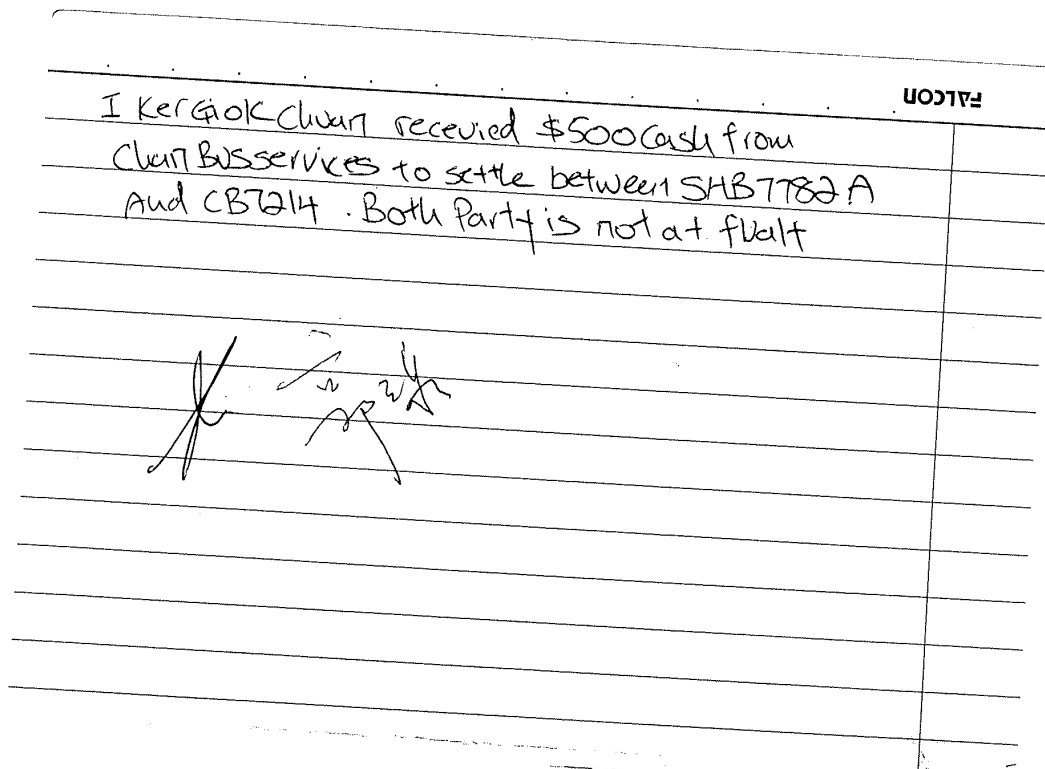 FALCON
I Ker Giok Chuan recevied $500 Cash from
Chan Busservices to settle between SHB7782A
And CB7214 . Both Party is not at fualt